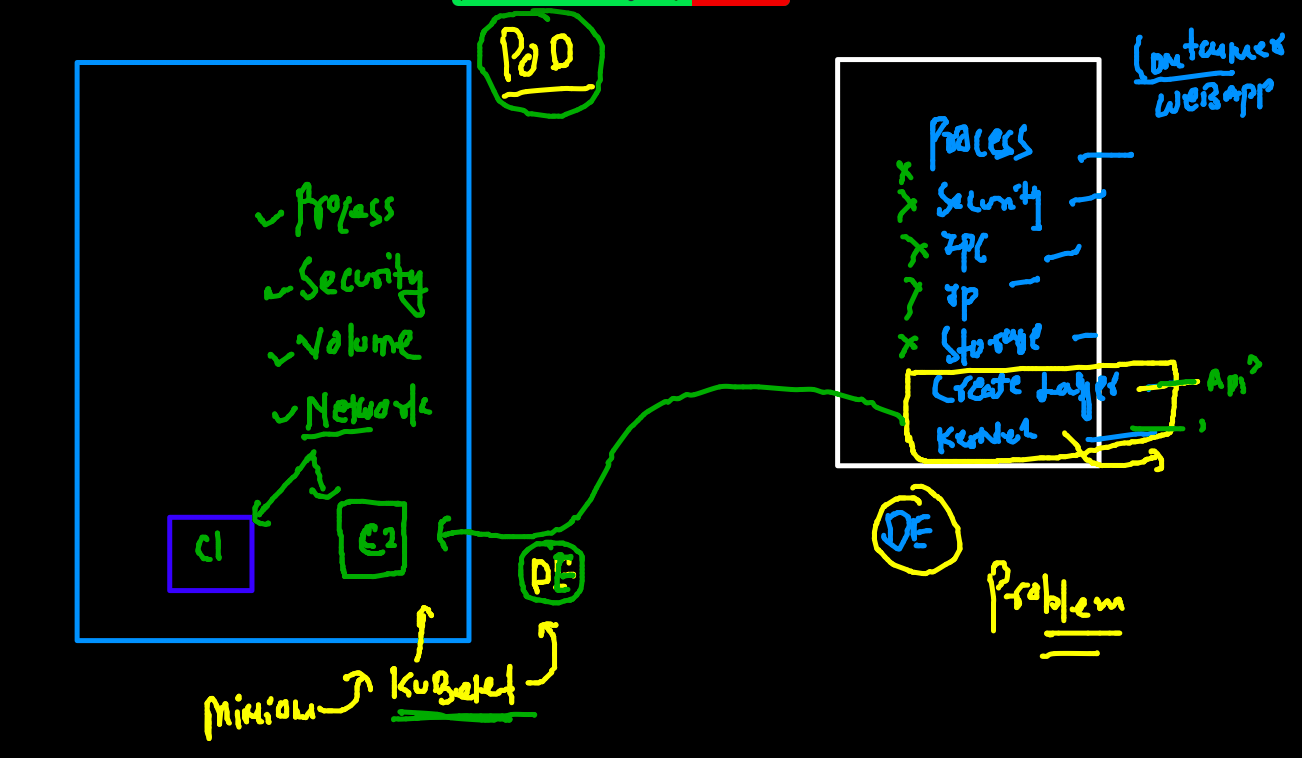 POD
Process
Security
Volume
Network
C1
C2
DE
Minion
KuBelet
Container
WEBapp
Process
Security
IPC
IP
Storage
Create Layer
Kernel
API
DE
Problem